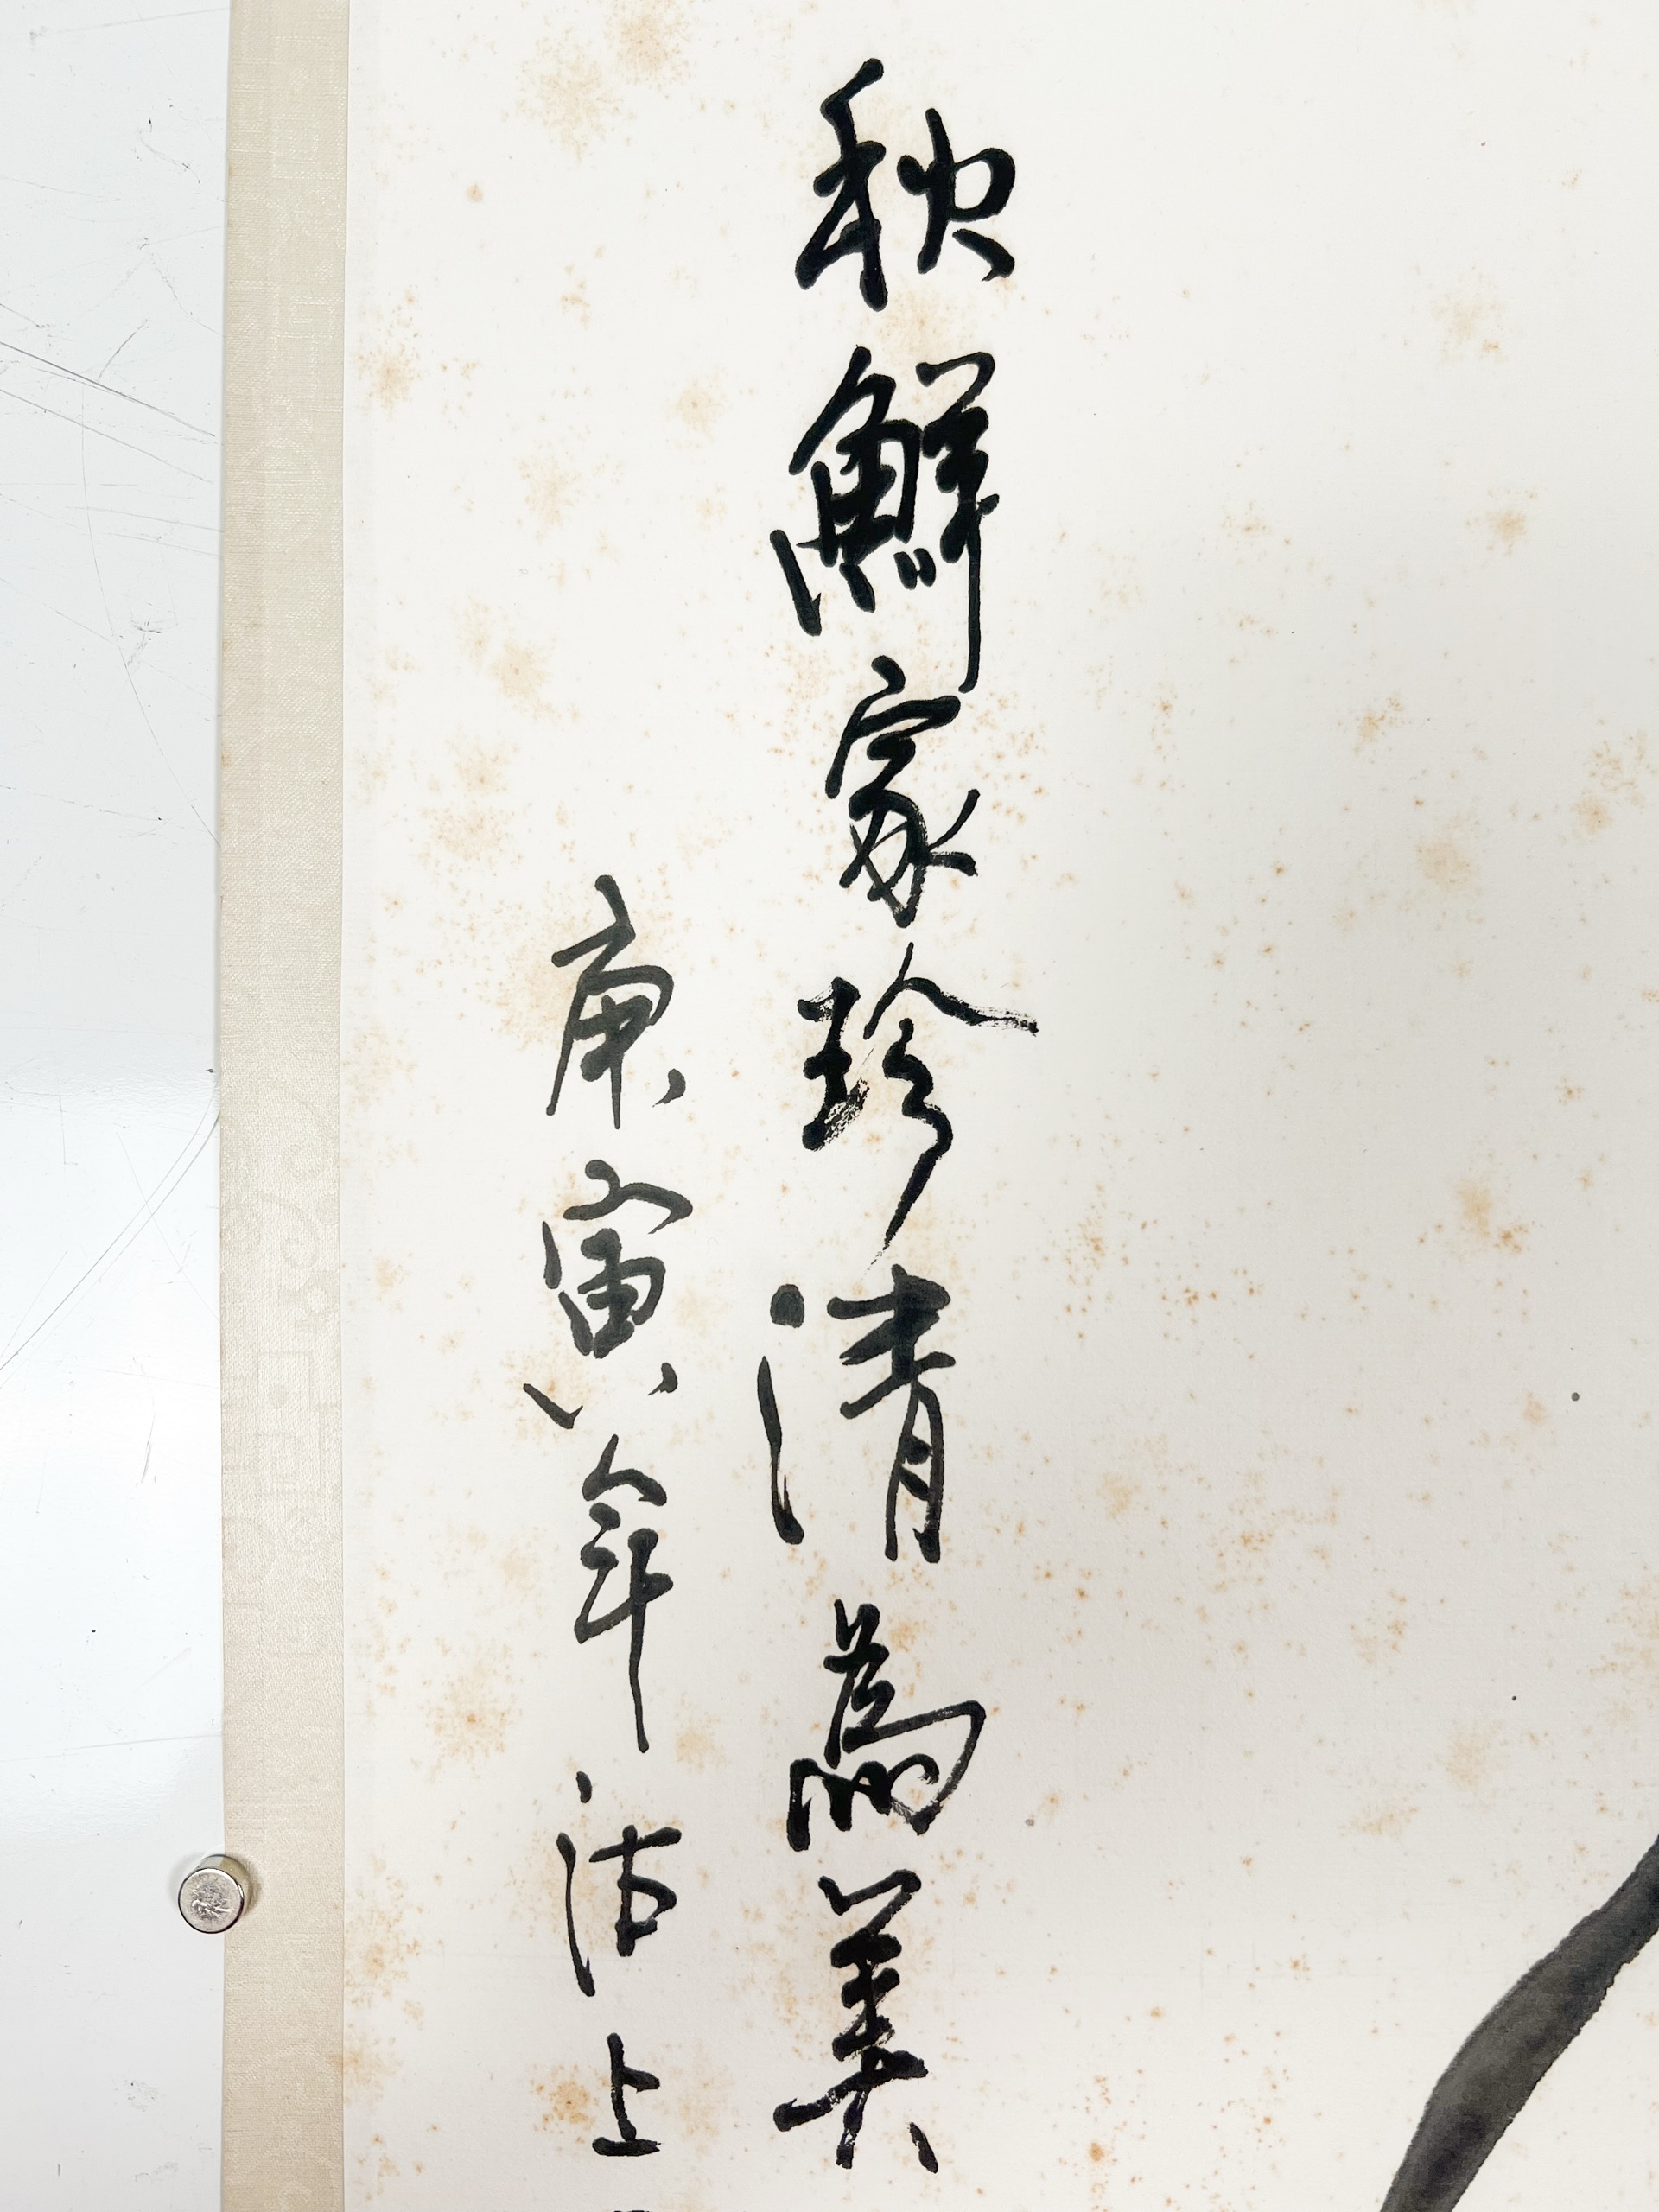 秋鮮家珍清為美
庚寅年沽上